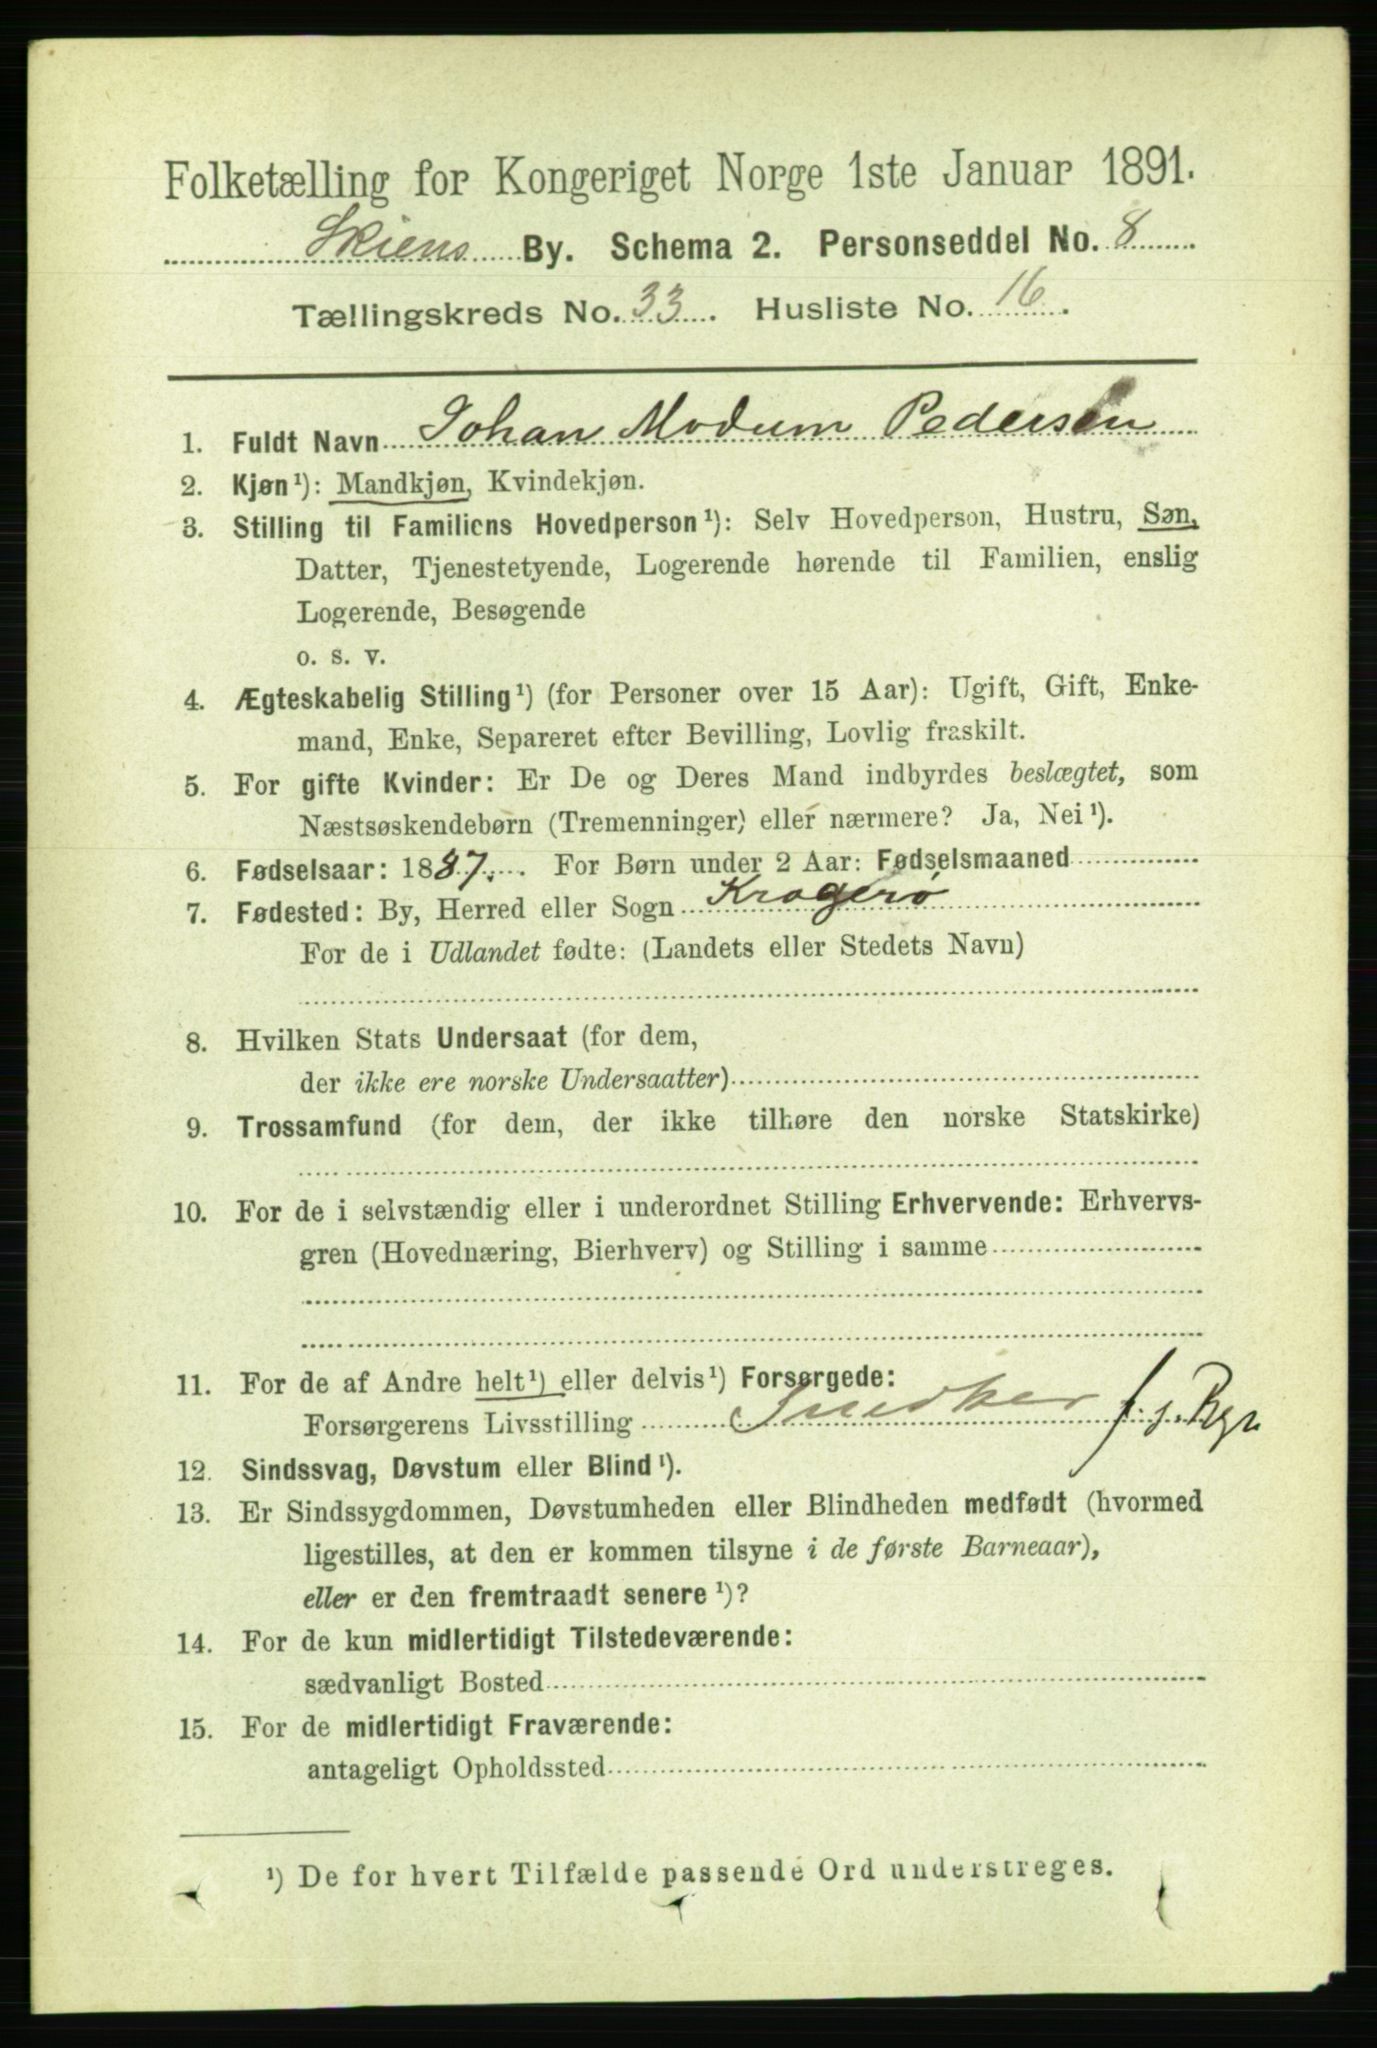 Folketælling for Kongeriget Norge 1ste Januar 1891.
Skiens By. Schema 2. Personseddel No. 8
Tællingskreds No. 33. Husliste No. 16.
1. Fuldt Navn Johan Modum Pedersen
2. Kjøn¹): Mandkjøn, Kvindekjøn.
3. Stilling til Familiens Hovedperson¹): Selv Hovedperson, Hustru, Søn,
Datter, Tjenestetyende, Logerende hørende til Familien, enslig
Logerende, Besøgende
o. s. v.
4. Ægteskabelig Stilling¹) (for Personer over 15 Aar): Ugift, Gift, Enke-
mand, Enke, Separeret efter Bevilling, Lovlig fraskilt.
5. For gifte Kvinder: Er De og Deres Mand indbyrdes beslægtet, som
Næstsøskendebørn (Tremenninger) eller nærmere? Ja, Nei¹).
6. Fødselsaar: 1887. For Børn under 2 Aar: Fødselsmaaned
7. Fødested: By, Herred eller Sogn Kragerø
For de i Udlandet fødte: (Landets eller Stedets Navn)
8. Hvilken Stats Undersaat (for dem,
der ikke ere norske Undersaatter)
9. Trossamfund (for dem, der ikke tilhøre den norske Statskirke)
10. For de i selvstændig eller i underordnet Stilling Erhvervende: Erhvervs-
gren (Hovednæring, Bierhverv) og Stilling i samme
11. For de af Andre helt¹) eller delvis¹) Forsørgede:
Forsørgerens Livsstilling Snedker f. j. Regn
12. Sindssvag, Døvstum eller Blind¹).
13. Er Sindssygdommen, Døvstumheden eller Blindheden medfødt (hvormed
ligestilles, at den er kommen tilsyne i de første Barneaar),
eller er den fremtraadt senere¹)?
14. For de kun midlertidigt Tilstedeværende:
sædvanligt Bosted
15. For de midlertidigt Fraværende:
antageligt Opholdssted
¹) De for hvert Tilfælde passende Ord understreges.